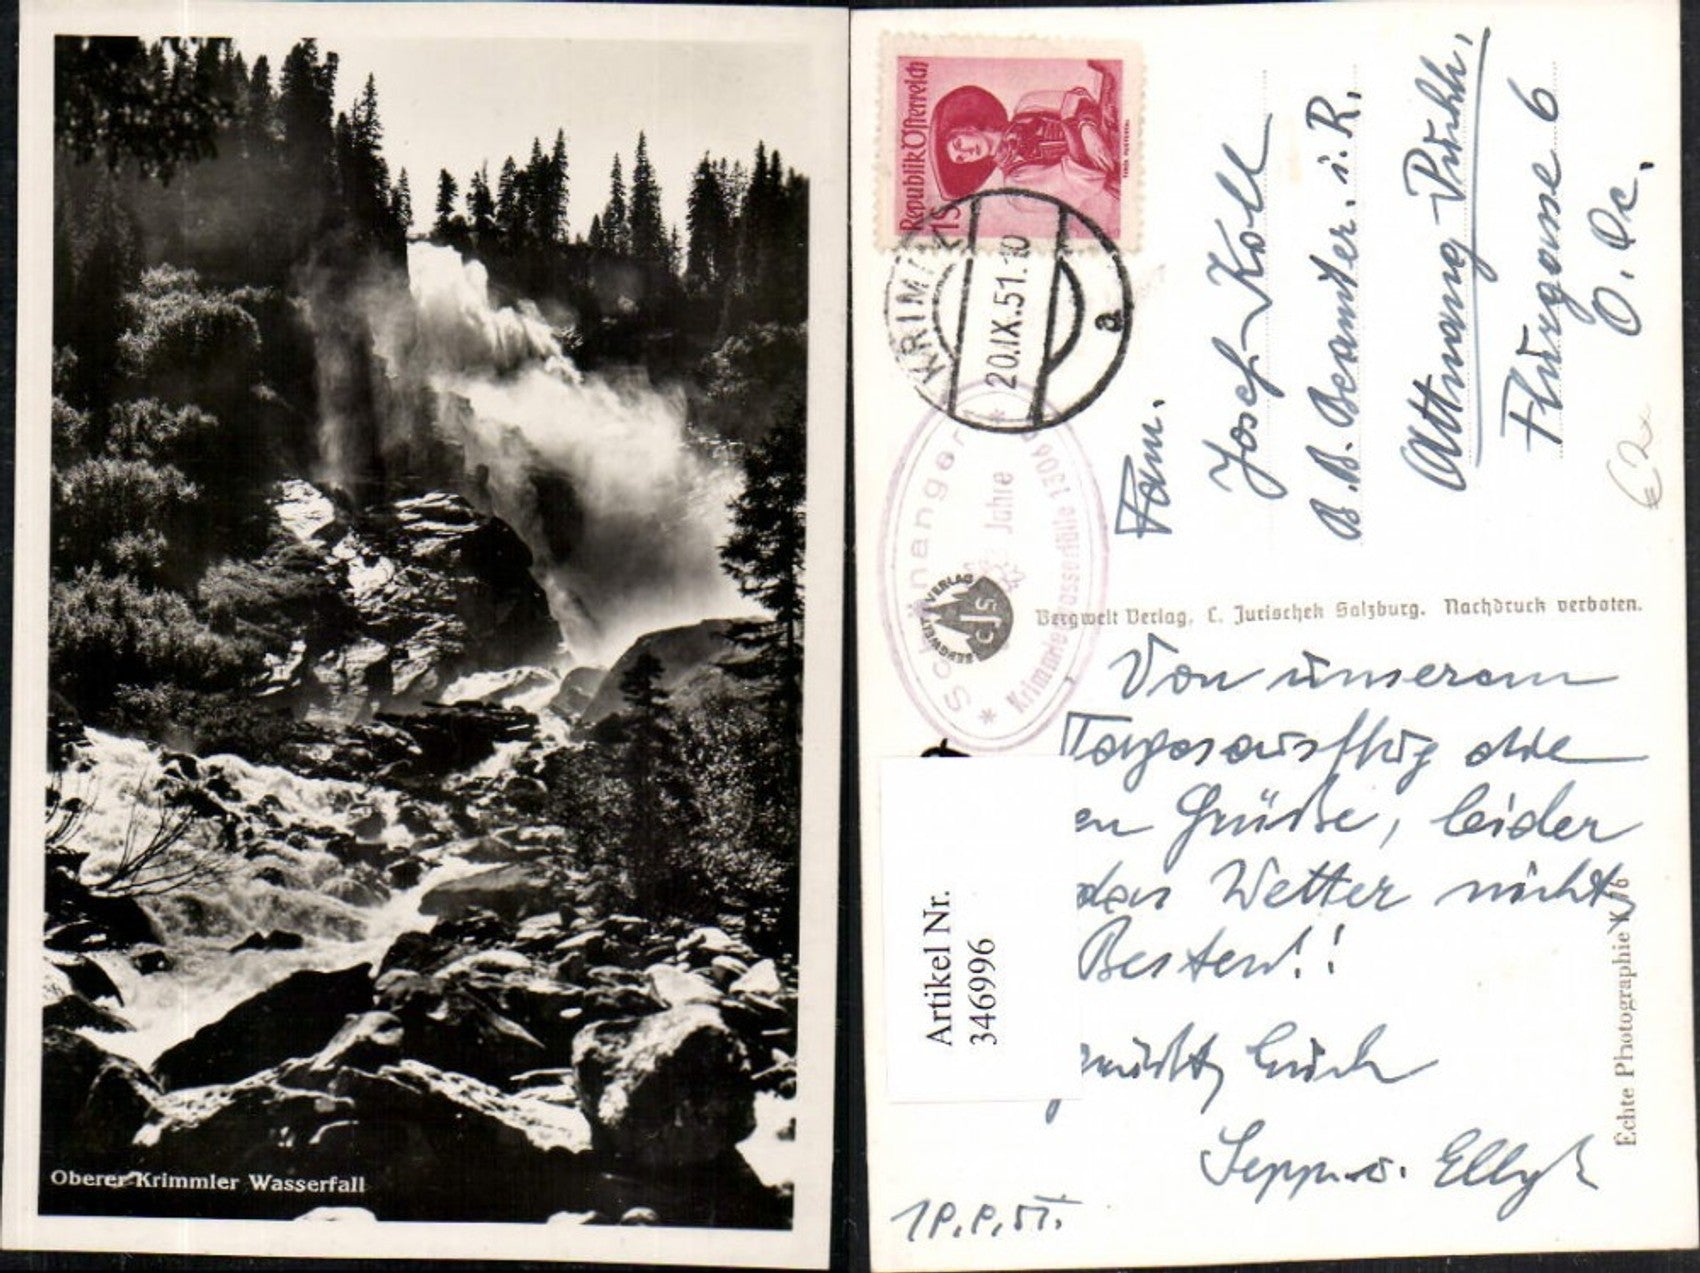 Oberer Krimmler Wasserfall
Republik Österreich
1S
KRIMML
20.IX.51.10
a
Schönangerl
Jahre
Krimmler Wasserfälle 1306m
BERGWELT VERLAG
CJS
Fam.
Josef Koll
B.B. Beamter. i. R.
Attnang-Puchh.
Flurgasse 6
O. Oe.
€ 2
Bergwelt Verlag, C. Jurischek Salzburg. Nachdruck verboten.
Von unserem
Tagesausflug die
en Grüße, leider
das Wetter nicht
Besten!!
Euch
Sepp u. Elly
Artikel Nr.
346996
Echte Photographie K 76